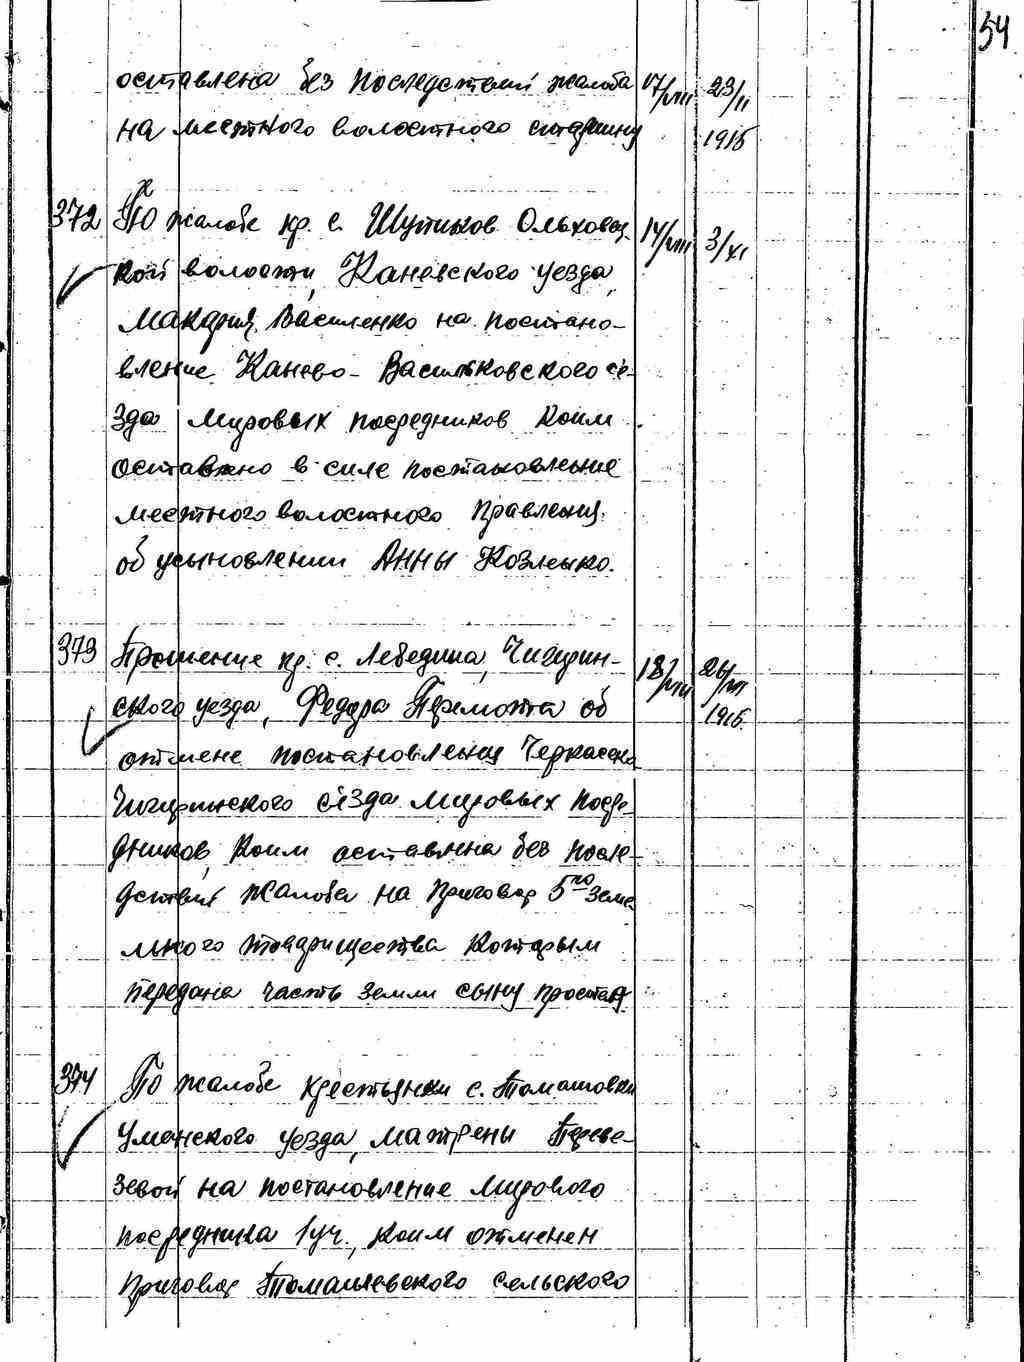 54
оставлена без последствий жалоба 17/VIII 23/II
на местного волостного старшину 1915
372 По жалобе кр. с. Шутиков Ольховец- 14/VIII 3/XI
кой волости, Каневского уезда,
Макария Василенко на постано-
вление Канево-Васильковского с'е-
зда Мировых посредников коим
оставлено в силе постановление
местного волостного правления
об усыновлении Анны Козленко.
373 Прошение кр. с. Лебедина, Чигирин- 18/VIII 26/VII
ского уезда, Федора Перемота об 1915.
отмене постановления Черкасско
Чигиринского с'езда мировых посре-
дников, коим оставлена без после-
дствий жалоба на приговор 5го земе
льного товарищества которым
передана часть земли сыну просителя
374 По жалобе крестьянки с. Томашовки
Уманского уезда, Матрены Переве-
зевой на постановление Мирового
посредника 1 уч., коим отменен
приговор Томашевского сельского